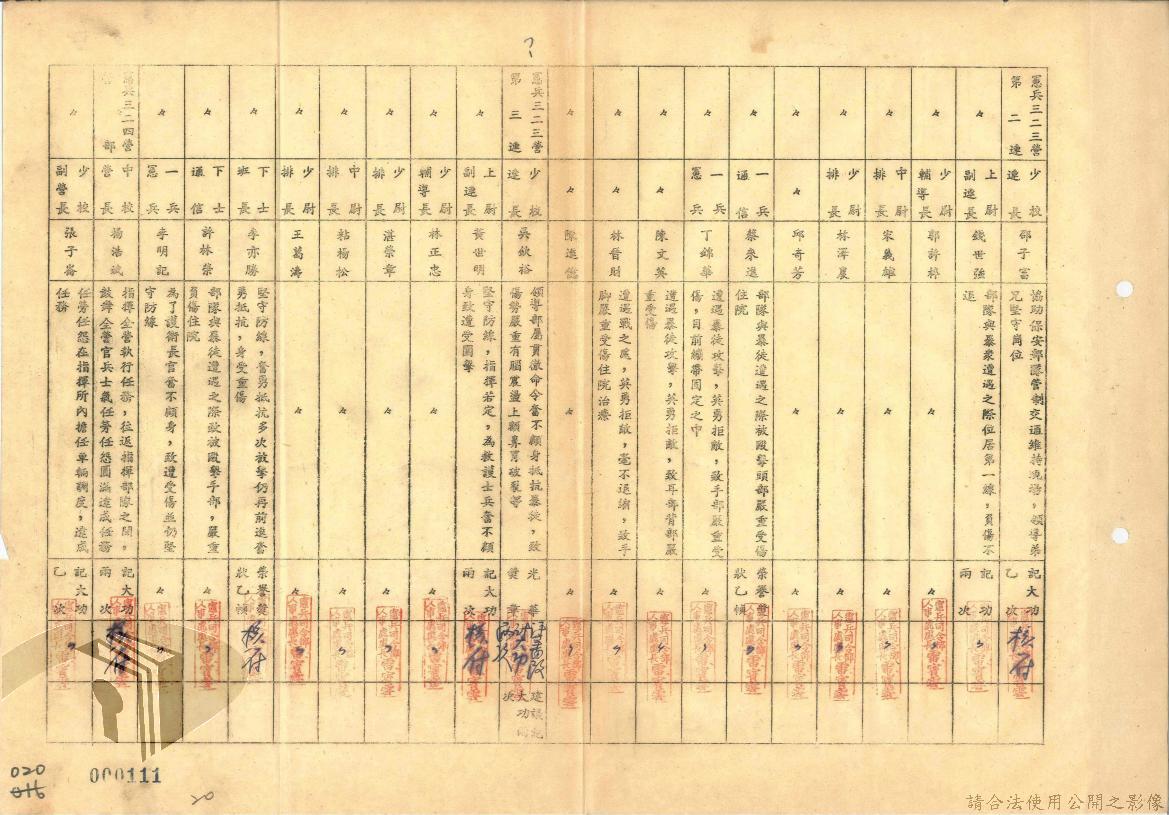 憲兵三二三營
第二連
少校
連長
邵子富
協助保安部隊管制交通維持現場，領導弟
兄堅守崗位
記大功
乙次
核符
〃
上尉
副連長
錢世強
部隊與暴衆遭遇之際位居第一線，負傷不
退
記功
兩次
〃
〃
少尉
輔導長
郭許梓
〃
〃
〃
〃
中尉
排長
宋義雄
〃
〃
〃
少尉
排長
林澤晨
〃
〃
〃
〃
邱奇芳
〃
〃
〃
一兵
通信
蔡來進
部隊與暴徒遭遇之際被毆擊頭部嚴重受傷
住院
榮譽獎
狀乙幀
〃
〃
一兵
憲兵
丁錦華
遭遇暴徒攻擊，英勇拒敵，致手部嚴重受
傷，目前繃帶固定之中
〃
〃
〃
〃
陳文英
遭遇暴徒攻擊，英勇拒敵，致耳部背部嚴
重受傷
〃
〃
〃
林晉財
遭遇戰之處，英勇拒敵，毫不退縮，致手
脚嚴重受傷住院治療
〃
〃
〃
〃
〃
〃
憲兵三二三營
第三連
少校
連長
吳欽裕
領導部屬貫徹命令奮不顧身抵抗暴徒，致
傷勞嚴重有腦震盪上顎鼻骨破裂等
光華
獎章
建議記
大功兩
次
〃
上尉
副連長
黃世明
堅守防線，指揮若定，為救護士兵奮不顧
身致遭受圍擊
記大功
兩次
核符
〃
少尉
輔導長
林正忠
〃
〃
〃
〃
少尉
排長
湛榮章
〃
〃
〃
〃
中尉
排長
粘楊松
〃
〃
〃
〃
少尉
排長
王葛濤
〃
〃
〃
〃
下士
班長
李亦勝
堅守防線，奮勇抵抗多次被擊仍再前進奮
勇抵抗，身受重傷
榮譽獎
狀乙幀
核符
〃
下士
通信
許林榮
部隊與暴徒遭遇之際致被毆擊手部，嚴重
負傷住院
〃
〃
〃
一兵
憲兵
李明記
為了護衛長官奮不顧身，致遭受傷並仍堅
守防線
〃
〃
憲兵三二四營
營部
中校
營長
楊浩斌
指揮全營執行任務，往返指揮部隊之間，
鼓舞全營官兵士氣任勞任怨圓滿達成任務
記大功
兩次
核符
〃
少校
副營長
張子嵛
任勞任怨在指揮所內擔任車輛調度，達成
任務
記大功
乙次
〃
020
000111
20
請合法使用公開之影像